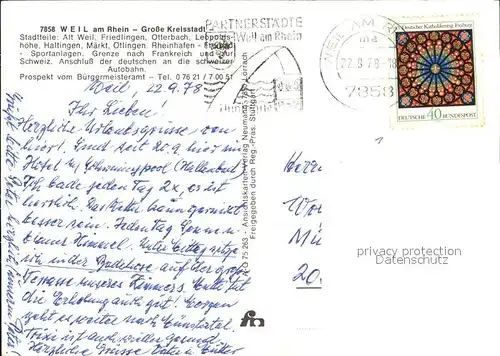 7858 WEIL am Rhein – Große Kreisstadt
Stadtteile: Alt Weil, Friedlingen, Otterbach, Leopolds-
höhe, Haltingen, Märkt, Ötlingen. Rheinhafen –
Sportanlagen. Grenz nach Frankreich und zur
Schweiz. Anschluß der deutschen an die schweizer
Autobahn.
Prospekt vom Bürgermeisteramt – Tel. 0 76 21 / 7 00 51
PARTNERSTÄDTE
Weil am Rhein
WEIL AM
22.9.78
7858
Deutscher Katholikentag Freiburg
DEUTSCHE 40 BUNDESPOST
Weil, 22.9.78
Ihr Lieben!
Herzliche Urlaubsgrüsse von
hier! Sind seit 20.9 hier im
Hotel m. Schwimmpool (Hallenbad)
bade jeden Tag 2x, es ist
herrlich. Das Wetter kann garnicht
besser sein. Jeden Tag Sonne u.
blauer Himmel. Unter Mittag sitze
ich in der Badehose auf der groß.
Terrasse unseres Zimmers. Mutti tut
die Erholung auch gut! Morgen
geht es weiter nach
ist auch wieder gesund
Herzliche Grüsse Vater u. Mutter
Ansichtskarten-Verlag Neumann, 785 Lörrach
Freigegeben durch Reg.-Präs. Stuttgart
75 263
Herrn
20
privacy protection
Datenschutz